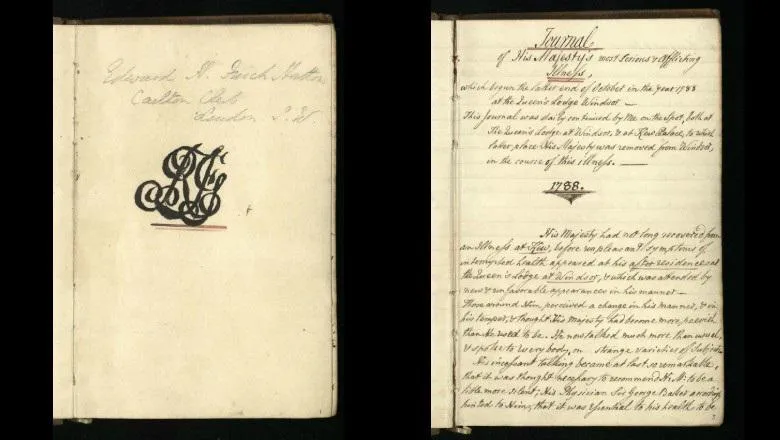 Edward H. Finch Hatton
Carlton Club
London S. W
RFG
Journal
of His Majesty's most Serious & Afflicting
Illness,
which begun the latter end of October in the year 1788
at the Queen's Lodge Windsor —
This Journal was daily continued by Me on the Spot, both at
The Queen's Lodge at Windsor, & at Kew Palace, to which
latter place His Majesty was removed from Windsor,
in the course of this illness. —
1788.
His Majesty had not long recovered from
an Illness at Kew, before unpleasant symptoms of
interrupted health appeared at his after residence at
the Queen's Lodge at Windsor, & which was attended by
new & unfavorable appearances in his manner —
Those around Him, perceived a change in his manner, & in
his temper, & thought His Majesty had become more peevish
than He used to be. He now talked much more than usual,
& spoke to every body, on strange varieties of Subjects
His incessant talking became at last so remarkable,
that it was thought necessary to recommend H: M: to be a
little more silent; His Physician Sir George Baker accordingly
hinted to Him, that it was essential to his health to be